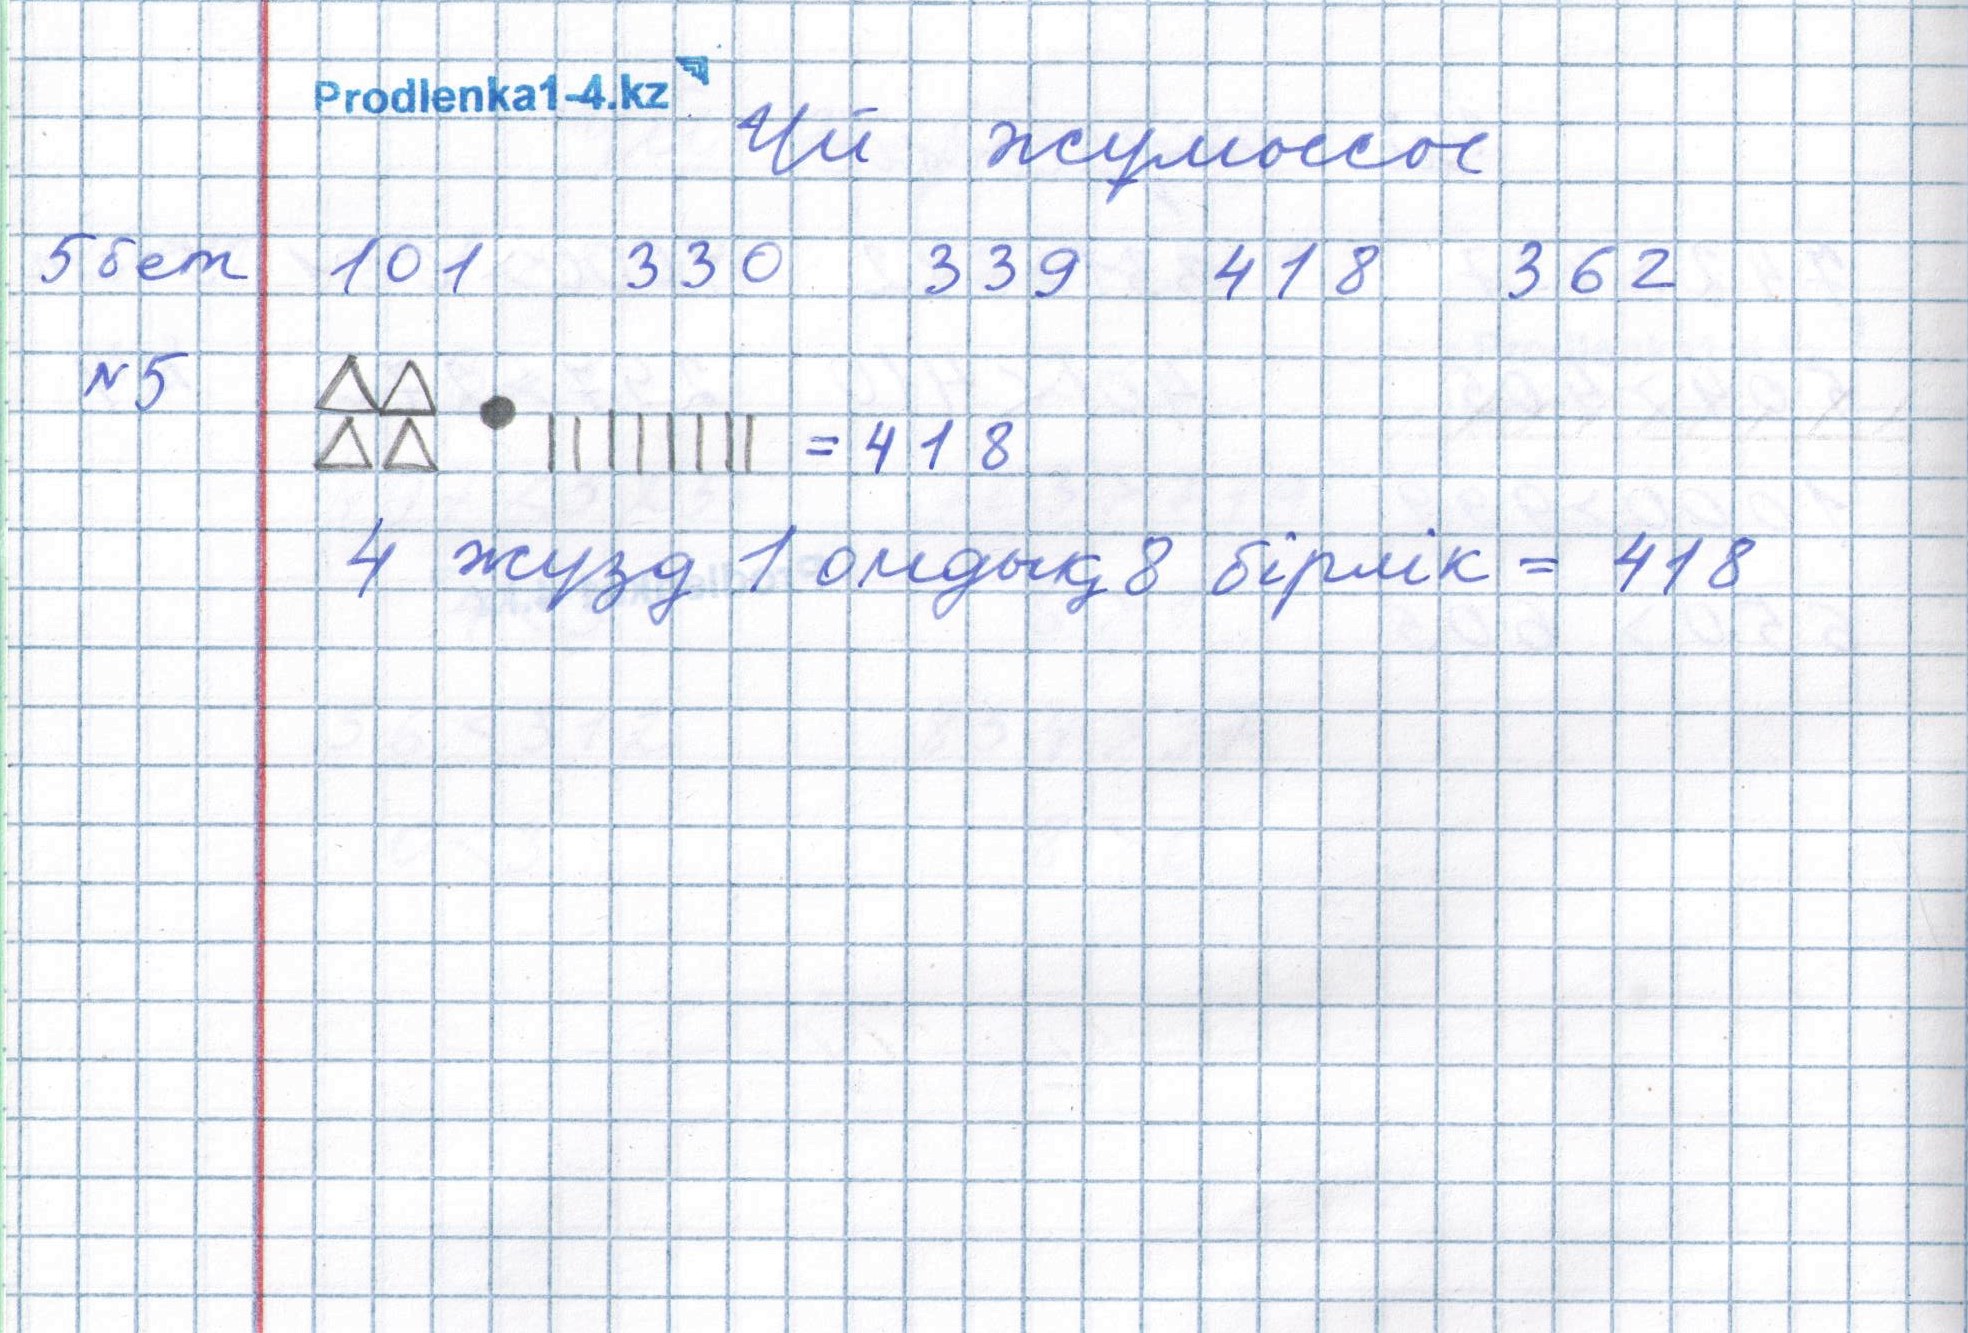 Prodlenka1-4.kz
Үй жұмысы
5 бет 101 330 339 418 362
№5 = 418
4 жүзд 1 ондық 8 бірлік = 418